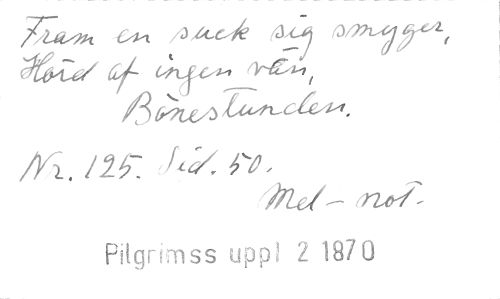 Fram en suck sig smyger,
Hörd af ingen vän,
Bönestunden.
Nr. 125. Sid. 50.
Mel-not.
Pilgrimss uppl 2 1870